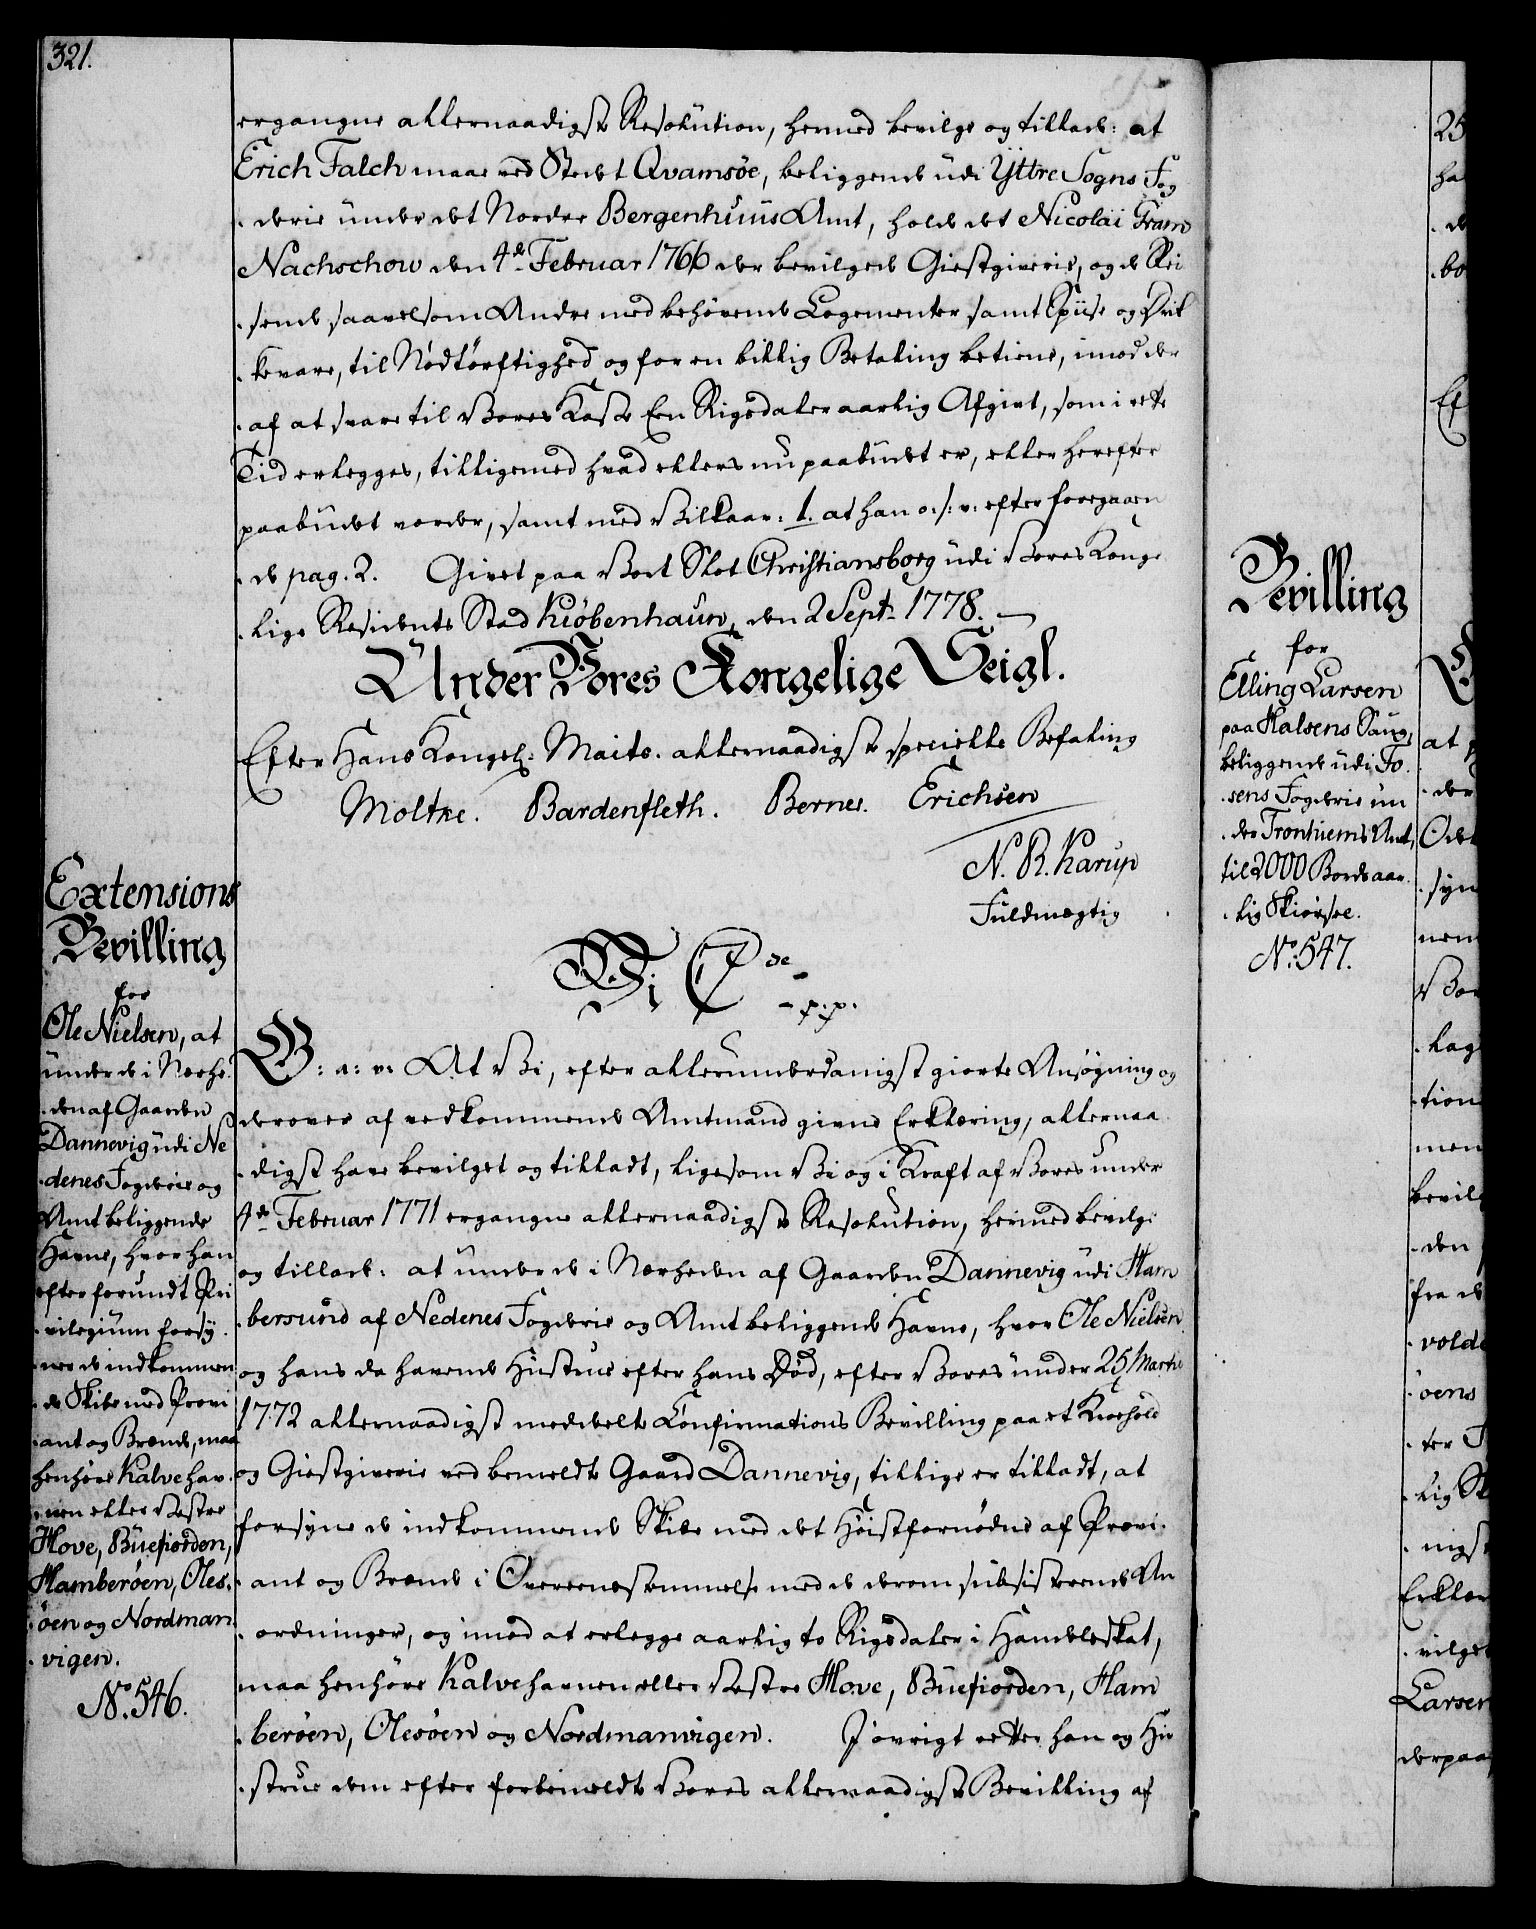 321.
ergangne allernaadigste Resolution, hermed bevilge og tillade: at
Erich Falch maae ved Stedet Qvamsøe, beliggende udi Yttre Sogns Fog
. derie under det Norder Bergenhuus Amt, holde det Nicolai Fram
Nachschow den 4de Februar 1766 der bevilgede Giestgiverie, og de Rei
. sende saavelsom Andre med behøvende Logementer samt Spiise og Drik
. kevare, til Nødtørftighed og for en billig Betaling betiene, imod der
. af at svare til Vores Kasse Een Rigsdaler aarlig Afgivt, som i rette
Tid erlegges, tilligemed hvad ellers nu paabudet er, eller herefter
paabudet vorder, samt med Vilkaar: 1. at han o: s: v: efter foregaaen
. de pag. 2. Givet paa Vort Slot Christiansborg udi Vores Konge
. lige Residents Stad Kiøbenhaun, den 2 Sept. 1778.
Under Vores Kongelige Seigl.
Efter Hans Kongel: Maits. allernaadigste specielle Befaling
Moltke. Bardenfleth. Berner. Erichsen
N. R. Karup
Fuldmægtig
Extensions
Bevilling
for
Ole Nielsen, at
under de i Nærhe
. den af Gaarden
Dannevig udi Ne
. denes Fogderie og
Amt beliggende
Havne, hvor han
efter forundt Pri
. vilegium forsy
. ner de indkommen
. de Skibe med Provi
. ant og Brænde, maa
henhøre Kalvehav
. nen eller Vestre
Hove, Buefiorden,
Hamberøen, Oles
. øen og Nordman
. vigen.
No. 546.
Vi C 7de
- p. p.
G: a: v: At Vi, efter allerunderdanigst giorte Ansøgning og
derover af vedkommende Amtmand givne Erklæring, allernaa
. digst have bevilget og tilladt, ligesom Vi og i Kraft af Vores under
4de Februar 1771 ergangne allernaadigste Resolution, hermed bevilge
og tillade: at under de i Nærheden af Gaarden Dannevig udi Ham
. bersund af Nedenes Fogderie og Amt beliggende Havne, hvor Ole Nielsen
og hans da havende Hustrue efter hans Død, efter Vores under 25 Martii
1772 allernaadigst meddelte Confirmations Bevilling paa et Kroehold
og Giestgiverie ved bemeldte Gaard Dannevig, tillige er tilladt, at
forsyne de indkommende Skibe med det Høistfornødne af Provi
. ant og Brænde i Overeensstemmelse med de derom subsisterende An
. ordninger, og imod at erlegge aarlig to Rigsdaler i Handelsskat,
maa henhøre Kalvehavnen eller Vestre Hove, Buefiorden, Ham
. berøen, Olesøen og Nordmanvigen. I øvrigt retter han og Hu
. strue dem efter forbemeldte Vores allernaadigste Bevilling af
Bevilling
for
Elling Larsen
paa Halsens Saug,
beliggende udi Fo
. sens Fogderie un
. der Tronhiems Amt,
til 2000 Bords aar
. lig Skiørsel.
No. 547.
25
ha
. de
. bo
Ef
at
. der
Ode
. syn
nem
Vor
. lag
. tion
men
bevilg
. den
fra d
. vold
. øens
. ter
. lig Sk
. nigst
Erklær
. vilget
Larsen
derpaa